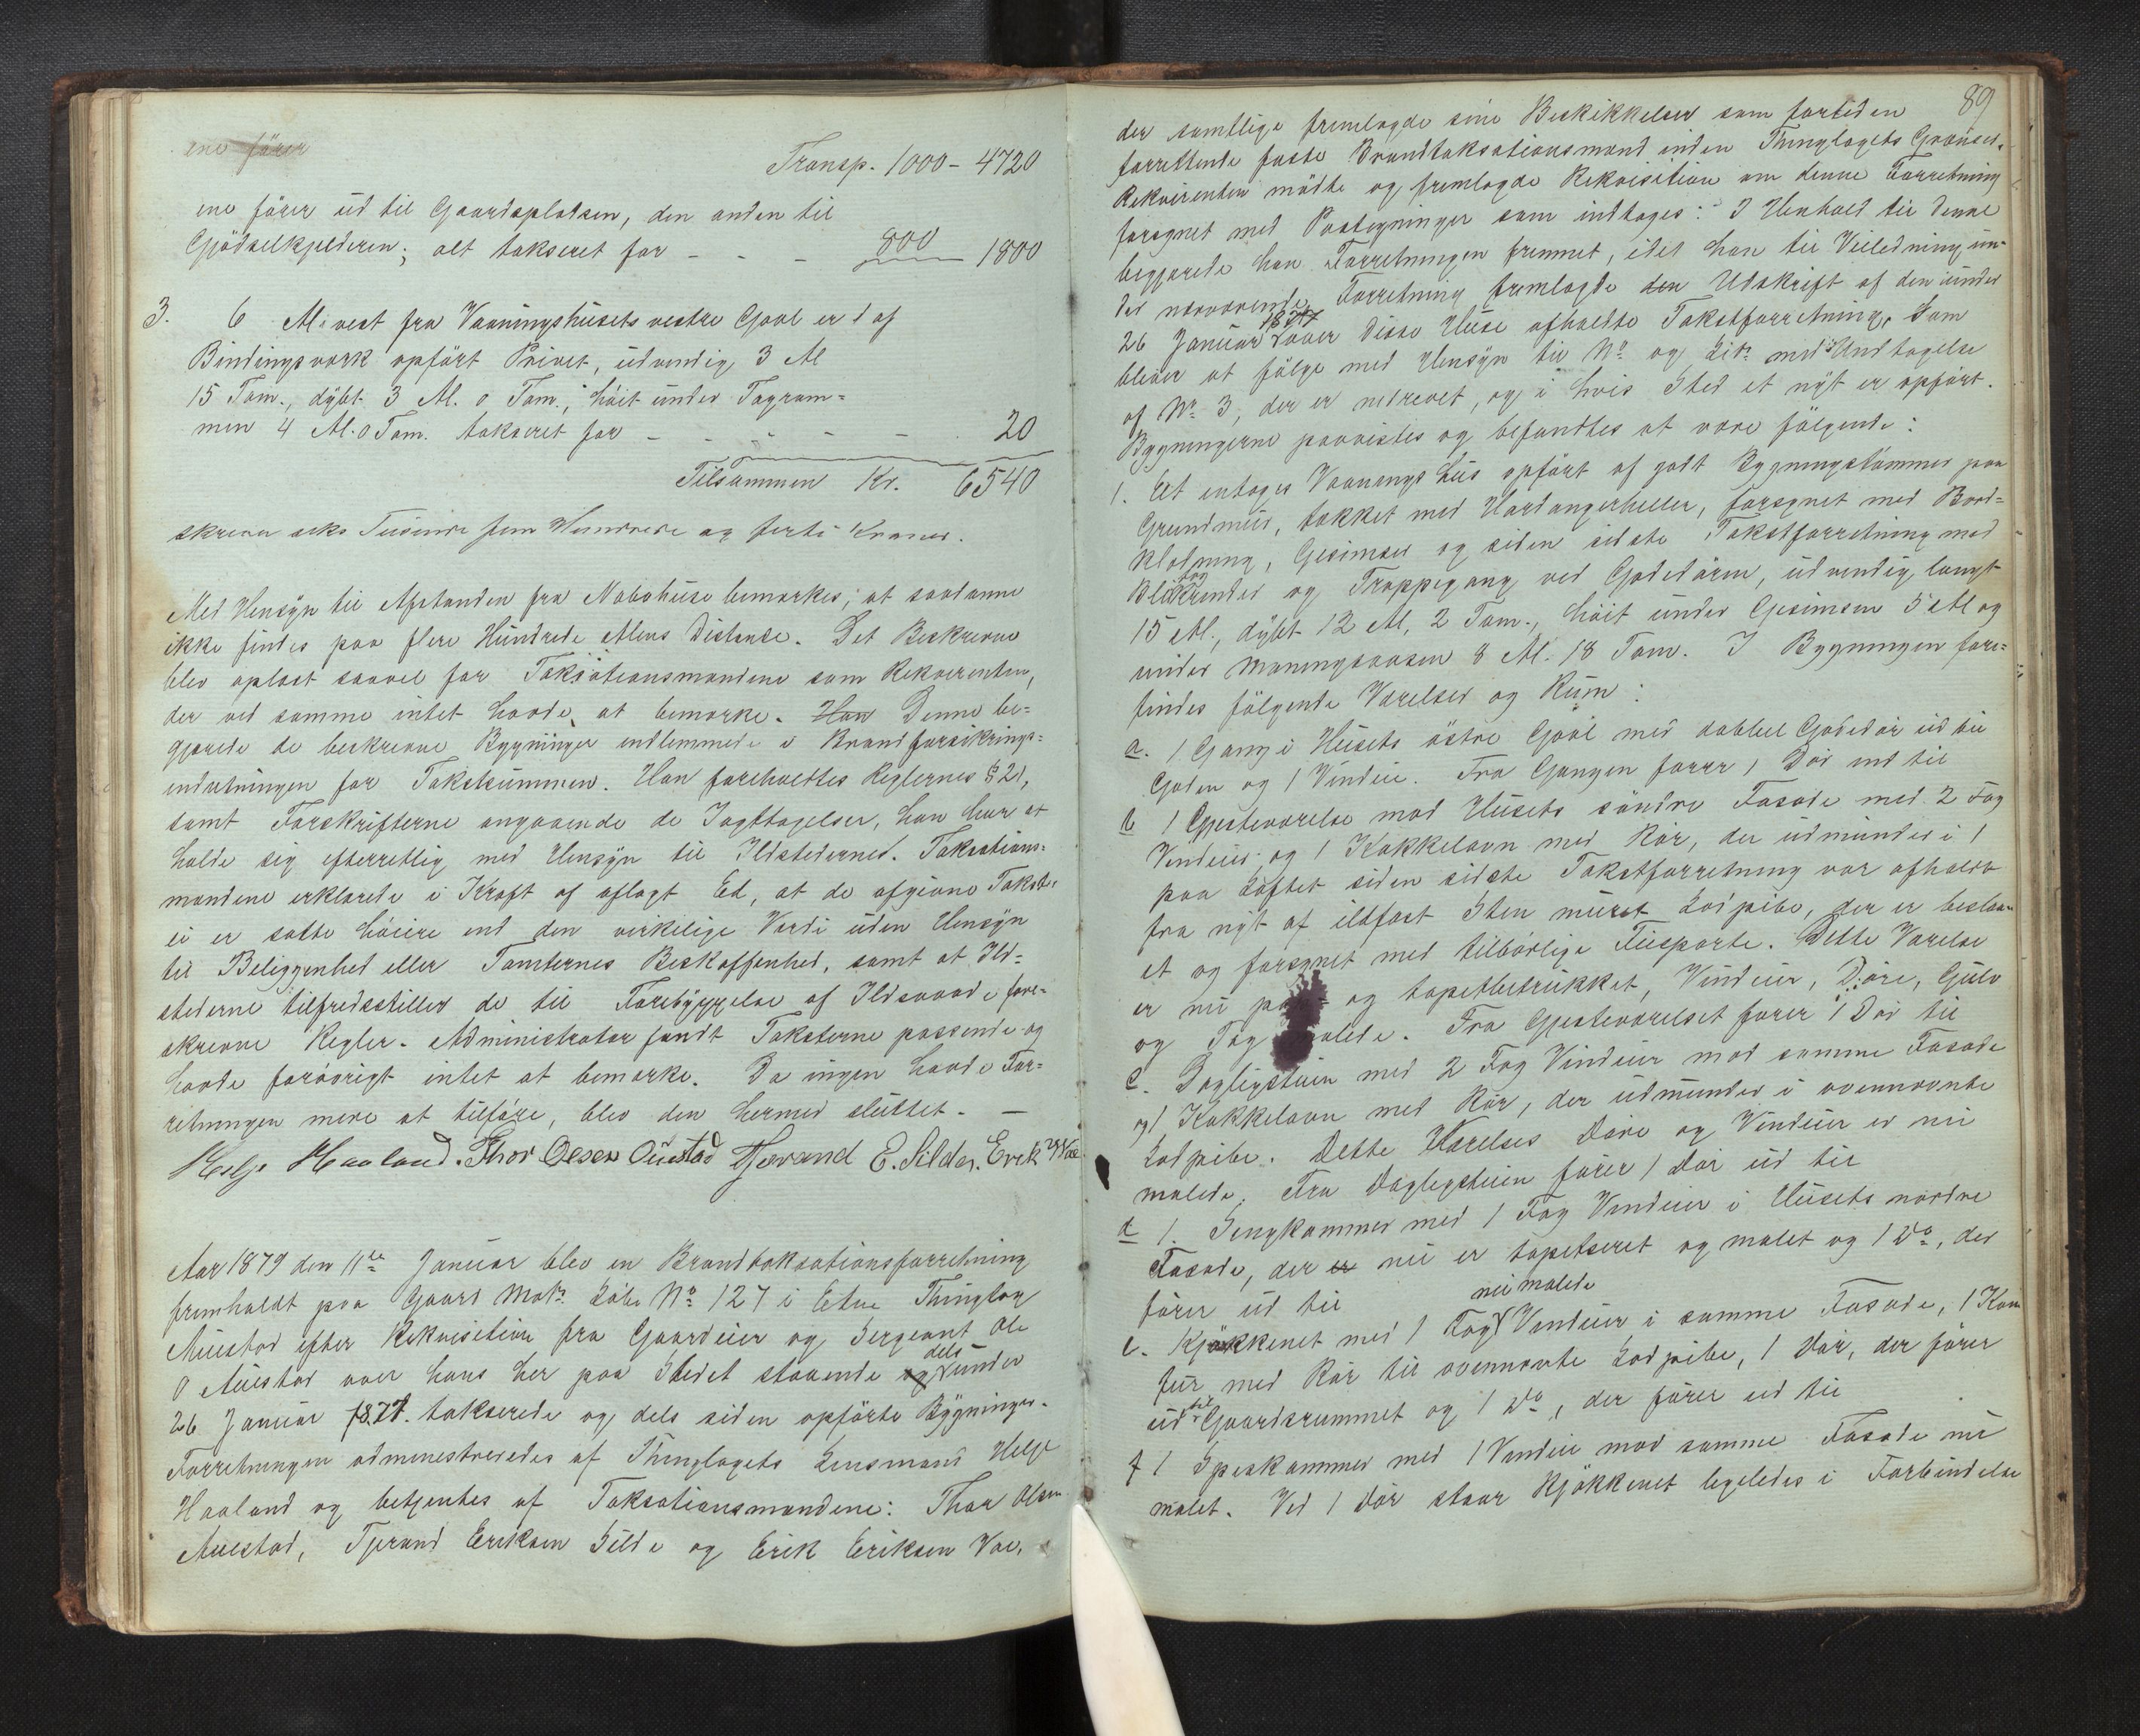 ene förer
Transp. 1000 - 4720
ene förer ud til Gaardspladsen, den anden til
Gjödselkjelderen; alt takseret for - - - 800 1800
3. 6 Al. vest fra Vaaningshusets vestre Gavl er 1 af
Bindingsverk opfört Privet, udvendig 3 Al
15 Tom., dybt 3 Al. 0 Tom., höit under Tagram=
men 4 Al. 0 Tom. takseret for - - - - - 20
Tilsammen Kr. 6540
skrevne seks Tusinde fem Hundrede og forti Kroner.
Med Hensyn til Afstanden fra Nabohuse bemærkes, at saadanne
ikke findes paa flere Hundrede Alens Distance. Det Beskrevne
blev oplæst saavel for Taksationsmændene som Rekvirenten,
der ved samme intet havde at bemærke. Han Denne be=
gjærede de beskrevne Bygninger indlemmede i Brandforsikrings=
indretningen for Takstsummen. Han foreholdtes Reglernes § 21,
samt Forskrifterne angaaende de Iagttagelser, han har at
holde sig efterrettlig med Hensyn til Ildstederne. Taksations=
mændene erklærede i Kraft af aflagt Ed, at de afgivne Takster
ei er satte höiere end den virkelige Værdi uden Hensyn
til Beliggenhed eller Tomternes Beskaffenhed, samt at Ild=
stederne tilfredsstiller de til Forebyggelse af Ildsvaade fore=
skrevne Regler. Administrator fandt Taksterne passende og
havde forövrigt intet at bemærke. Da ingen havde For=
retningen mere at tilföre, blev den hermed sluttet. —
Helje Haaland. Thor Olsen Austad Tjerand E. Silde. Erik Voe
Aar 1879 den 11te Januar blev en Brandtaksationsforretning
fremholdt paa Gaard Matr. Löbe No 127 i Etne Thinglag
Auestad efter Rekvisition fra Gaardeier og Sergeant Ole
O Auestad over hans her paa Stedet staaende og dels under
26 Januar 1877. takserede og dels siden opförte Bygninger.
Forretningen administreredes af Thinglagets Lensmand Helje
Haaland og betjentes af Taksationsmændene: Thor Olsen
Auestad, Tjerand Eriksen Silde og Erik Eriksen Voe,
89
der samtlige fremlagde sine Beskikkelser som fortiden
forrettende faste Brandtaksationsmænd inden Thinglagets Grænser.
Rekvirenten mödte og fremlagde Rekvisition om denne Forretning
forsynet med Paategninger som indtages: I Henhold til denne
begjærede han Forretningen fremmet, idet han til Veiledning un=
der nærværende Forretning fremlagde den Udskrift af den under
26 Januar 1877 over disse Huse afholdte Takstforretning, som
bliver at fölge med Hensyn til No og Litr. med Undtagelse
af No 3, der er nedrevet, og i hvis Sted et nyt er opfört.
Bygningerne paavistes og befandtes at være fölgende:
1. Et entages Vaaningshus opfört af godt Bygningstömmer paa
Grundmur, tækket med Hardangerheller, forsynet med Bord=
klædning, Gesimser og siden sidste Takstforretning med
Bliktagrender og Trappegang ved Gadedören, udvendig langt
15 Al., dybt 12 Al, 2 Tom., höit under Gesimsen 5 Al og
under Møningsaasen 8 Al. 18 Tom. I Bygningen fore=
findes fölgende Værelser og Rum:
a. 1 Gang i Husets östre Gavl med dobbel Gadedör ud til
Gaden og 1 Vindue. Fra Gangen förer 1 Dör ind til
b 1 Gjesteværelse mod Husets söndre Fasade med 2 Fag
Vinduer og 1 Kakkelovn med Rör, der udmunder i 1
paa Loftet siden sidste Takstforretning var afholdt
fra nyt af ildfast Sten muret Lodpibe, der er beslaa=
et og forsynet med tilbörlige Feieporte. Dette Værelse
er nu og tapetbetrukket, Vinduer, Döre, Gulv
og Tag malede. Fra Gjesteværelset förer 1 Dör til
c. Dagligstuen med 2 Fag Vinduer mod samme Fasade
og 1 Kakkelovn med Rör, der udmunder i ovennævnte
Lodpibe. Dette Værelses Döre og Vinduer er nu
malede. Fra Dagligstuen förer 1 Dör ud til
d 1. Sengkammer med 1 Fag Vinduer i Husets nordre
Fasade, der er nu er tapetseret og malet og 1 Do, der
förer ud til
e. Kjøkkenet med 1 Fag nu malede Vinduer i samme Fasade, 1 Kom
fur med Rör til ovennævnte Lodpibe, 1 Dör, der förer
ud til Gaardsrummet og 1 Do, der förer ud til
f 1 Speskammer med 1 Vindue mod samme Fasade nu
malet. Ved 1 Dör staar Kjøkkenet ligeledes i Forbindelse